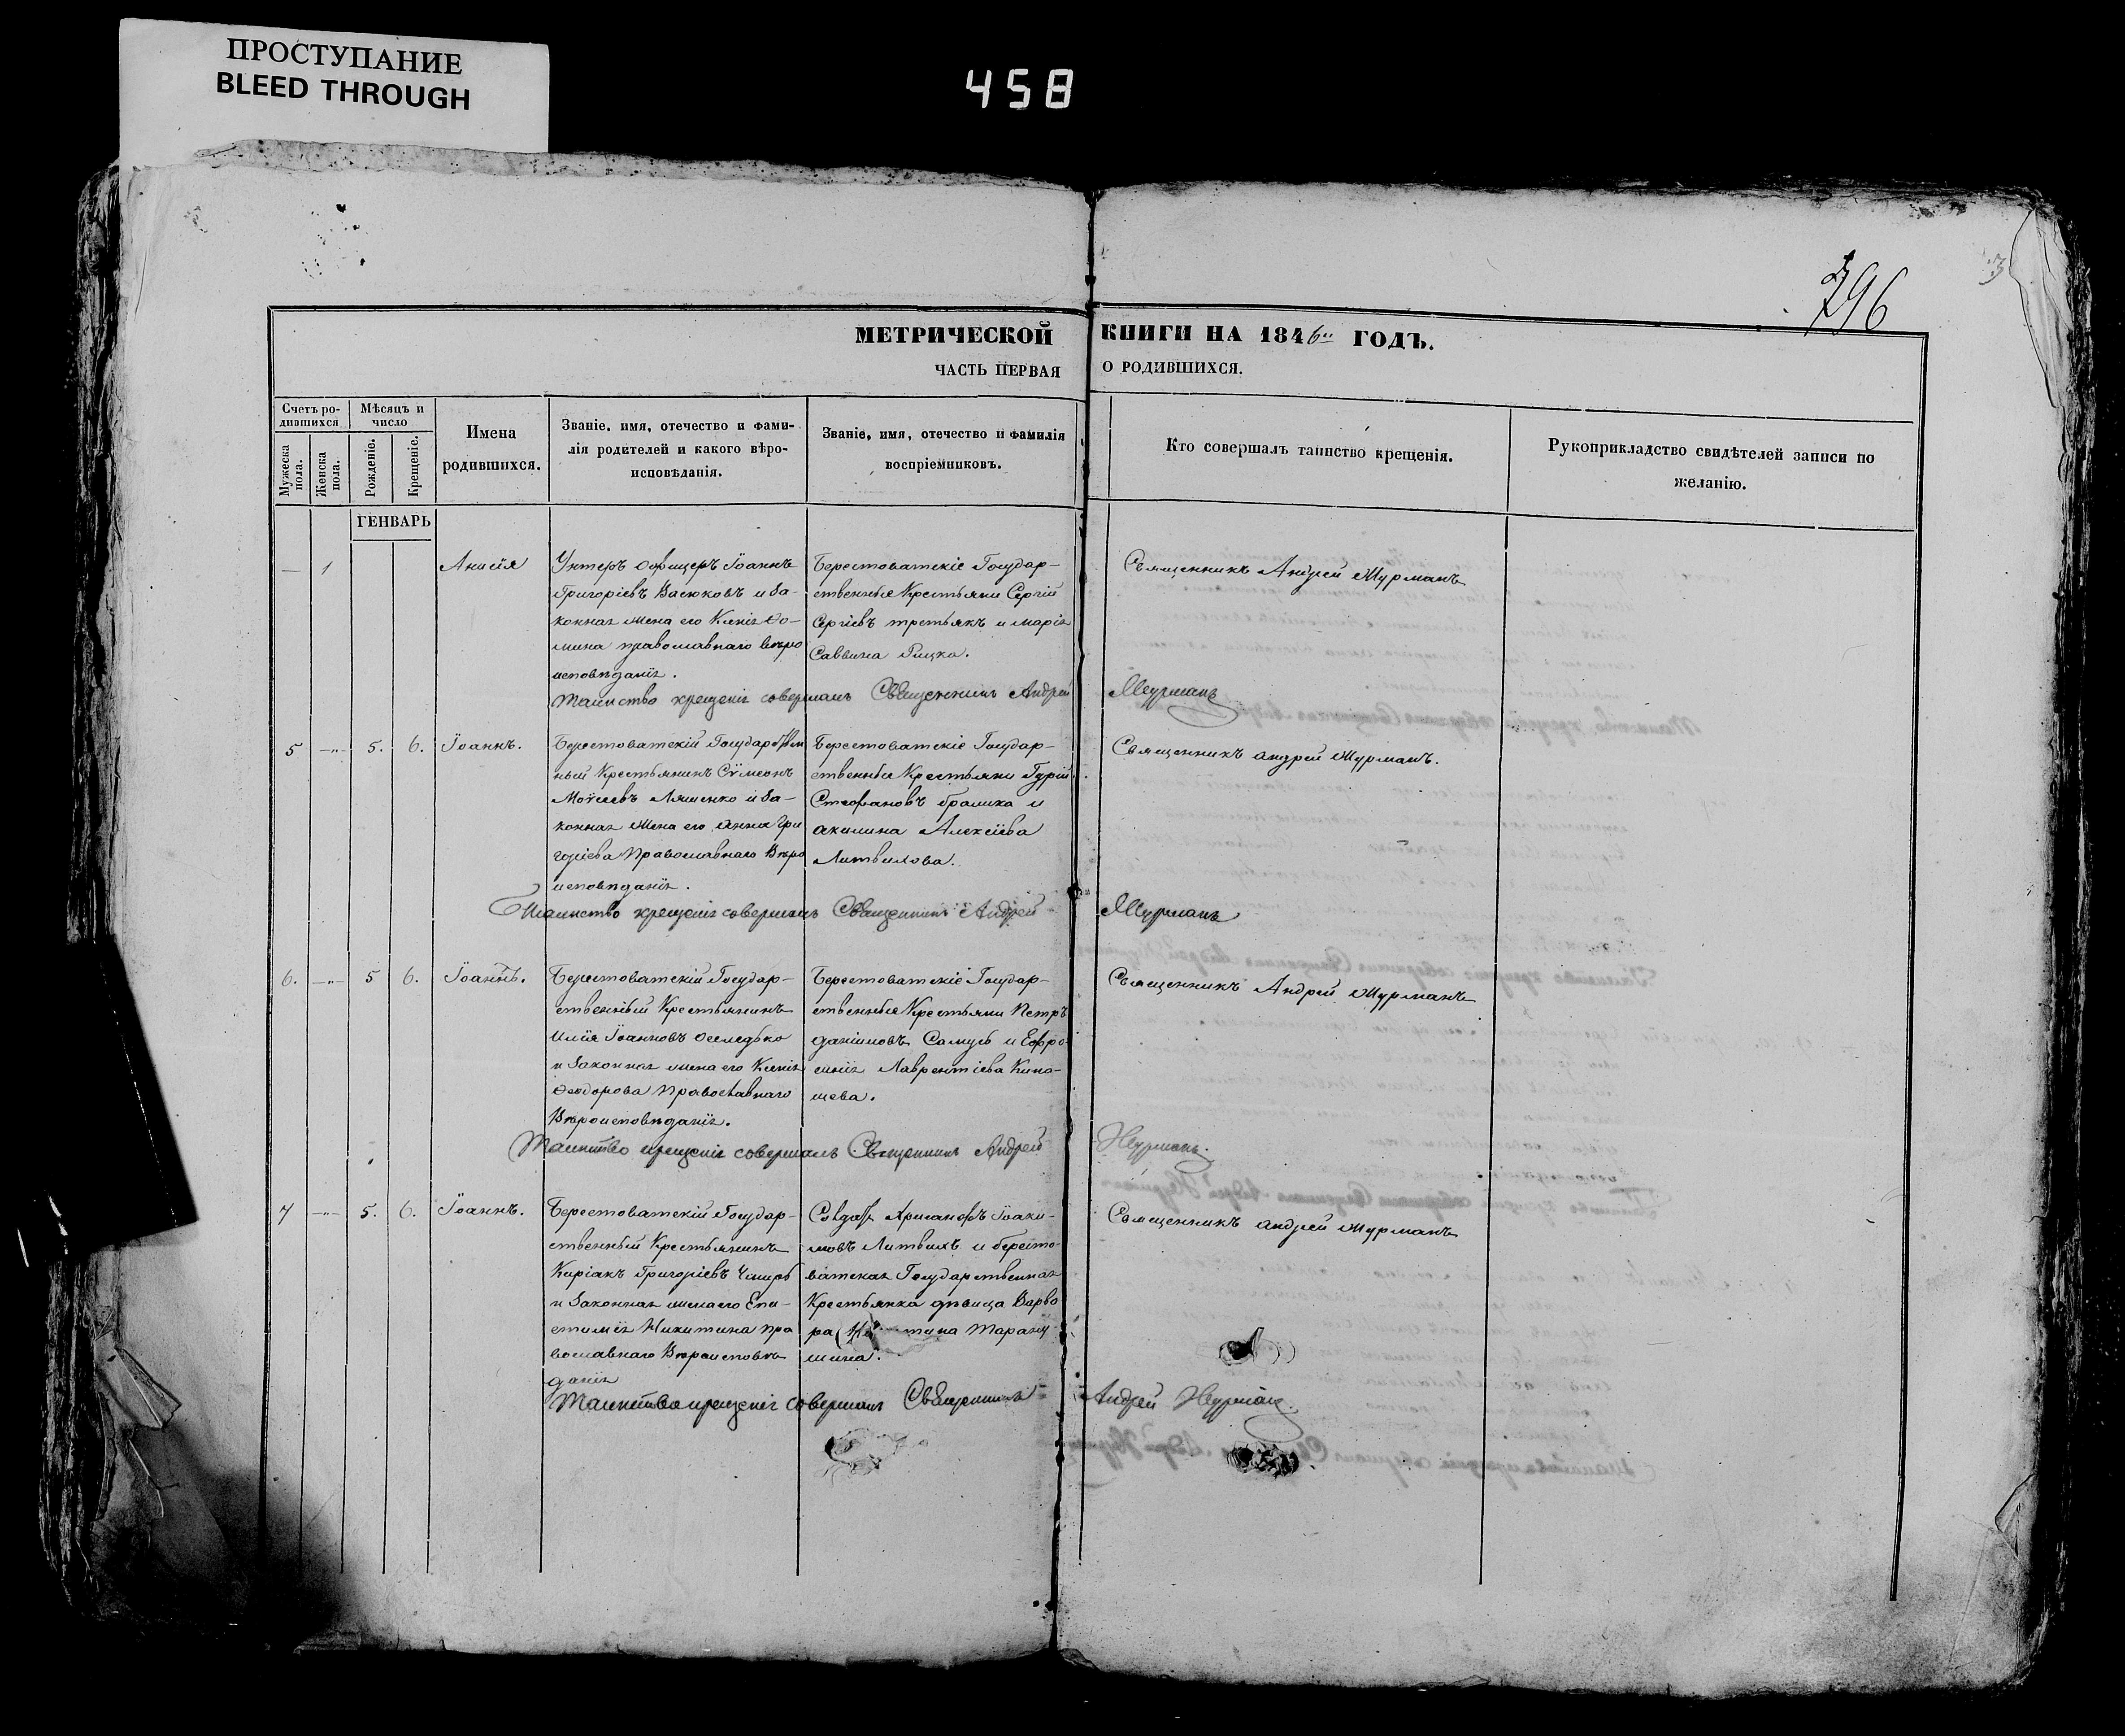 ПРОСТУПАНИЕ
BLEED THROUGH
458
296
МЕТРИЧЕСКОЙ КНИГИ НА 1846 ГОДЪ.
ЧАСТЬ ПЕРВАЯ О РОДИВШИХСЯ.
Счетъ ро-
дившихся
Мужеска
пола.
Женска
пола.
Мѣсяцъ и
число
Рожденіе.
Крещеніе.
Имена
родившихся.
Званіе, имя, отечество и фами-
лія родителей и какого вѣро-
исповѣданія.
Званіе, имя, отечество и фамилія
воспріемниковъ.
Кто совершалъ таинство крещенія.
Рукоприкладство свидѣтелей записи по
желанію.
ГЕНВАРЬ
1
Унтеръ Офицеръ Іоаннъ
Григоріевъ Васюковъ и За-
конная жена его Ксенія Ѳо-
мина православнаго вѣро
исповѣданія.
Берестоватскіе Государ-
ственныя Крестьяни Сергій
Сергіевъ третьякъ и марія
Саввина
Священникъ Андрей Мурманъ
Таинство крещенія совершалъ Священникъ Андрей Мурманъ
5 5. 6. Іоаннъ.
Берестоватскій Государствен
ный Крестьянинъ Сѵмеонъ
Моѵсеевъ Ляшенко и За-
конная жена его Анна Гри
горіева Православнаго Вѣро
исповѣданія.
Берестоватскіе Государ-
ственныя Крестьяни Гурій
Стефановъ и
акилина Алексіева
Литвинова.
Священникъ андрей Мурманъ.
Таинство крещенія совершалъ Священникъ Андрей Мурманъ
6. 5 6. Іоаннъ.
Берестоватскій Государ-
ственный Крестьянинъ
Илія Іоанновъ Оселедько
и Законная жена его Ксенія
Ѳеодорова Православнаго
Вѣроисповѣданія.
Берестоватскіе Государ-
ственныя Крестьяни Петръ
даніиловъ Самусь и Евфро-
синія Лаврентіева
Священникъ Андрей Мурманъ
Таинство крещенія совершалъ Священникъ Андрей Мурманъ.
7 5. 6. Іоаннъ.
Берестоватскій Государ-
ственный Крестьянинъ
Киріакъ Григоріевъ
и Законная жена его Епи-
стимія Никитина пра
вославнаго Вѣроисповѣ
данія
Солдатъ Іоаки-
мовъ Литвинъ и бересто-
ватская Государственная
Крестьянка дѣвица Варва
ра
Священникъ андрей Мурманъ
Таинство крещенія совершалъ Священникъ Андрей Мурманъ.